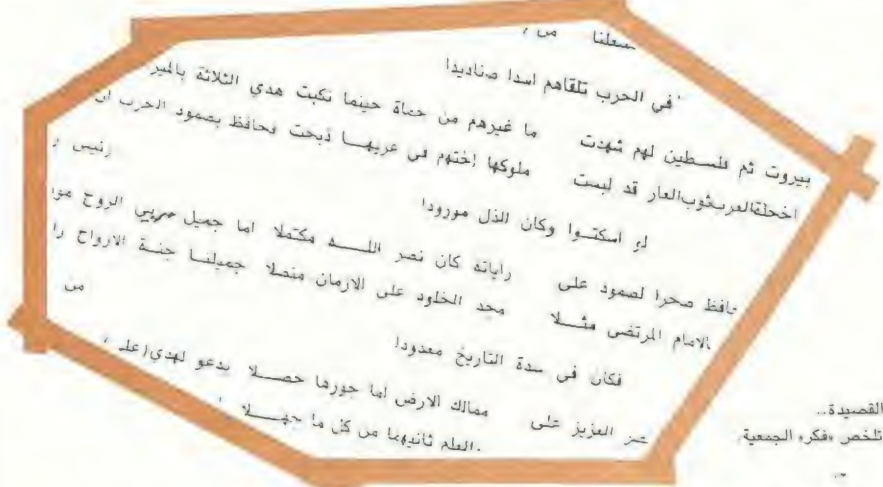 في الحرب تلقاهم اسدا صناديدا
بيروت ثم فلسطين لهم شهدت ما غيرهم من حماة حينما نكبت هدي الثلاثة
اخجلة العرب ثوب العار قد لبست ملوكها إختهم في عربهـا ذبحت فحافظ بصمود الحرب
رئيس
لو اسكتـوا وكان الذل مورودا
حافظ صحرا لصمود على راياته كان نصر اللـه مكتملا اما جميل عربي الروح
بالامام المرتضى مثـلا مجد الخلود على الازمان متصلا جميلنـا جنـة الارواح
من
فكان في سدة التاريخ معدودا
العزيز على ممالك الارض اما جورها حصـلا يدعو لهدي
العلم ثانيهما من كل ما جهـلا
القصيدة..
تلخص «فكر» الجمعية